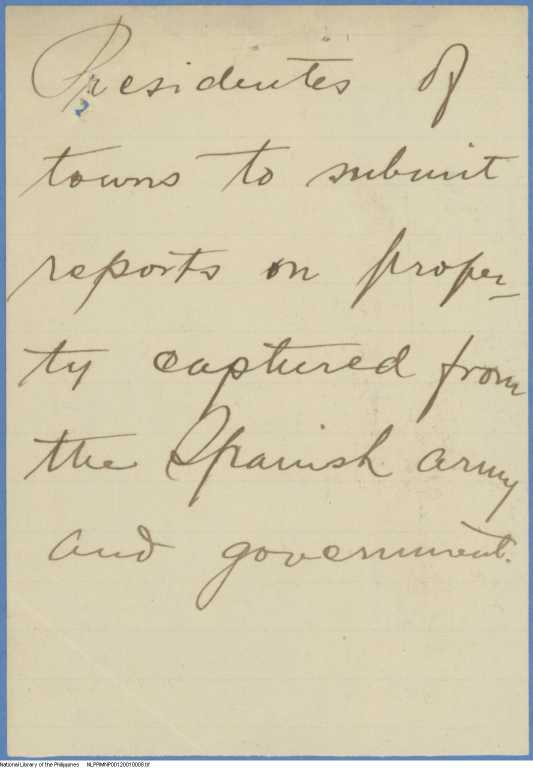 Presidentes of
2
towns to submit
reports on proper-
ty captured from
the Spanish army
and government.
National Library of the Philippines NLPPIMNP00120010008.tif